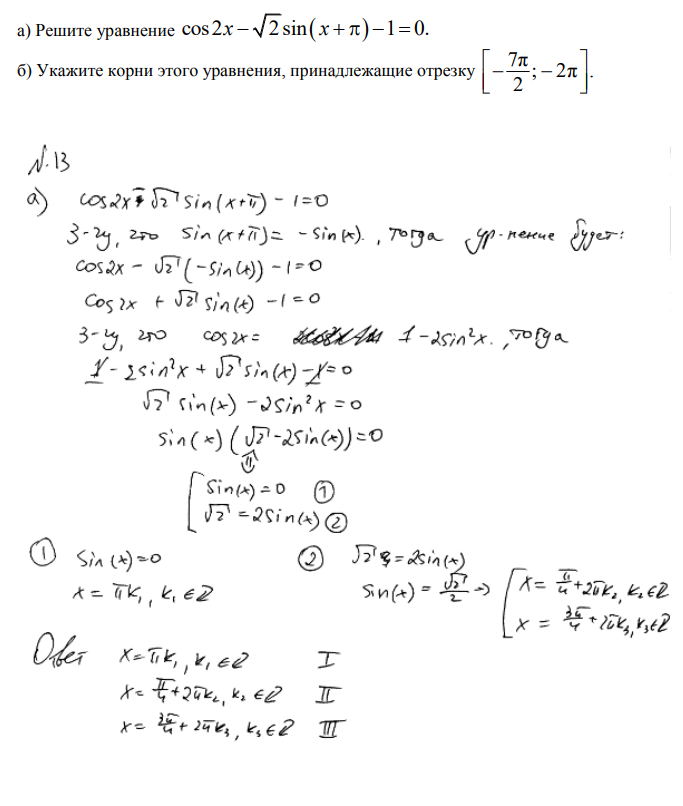 а) Решите уравнение cos2x − √2 sin(x + π) − 1 = 0.
б) Укажите корни этого уравнения, принадлежащие отрезку [−7π/2; −2π].
N.13
а) cos2x − √2 sin(x+π) − 1 = 0
З-чу, что sin(x+π) = −sin(x)., тогда ур-нение будет:
cos2x − √2 (−sin(x)) − 1 = 0
cos2x + √2 sin(x) − 1 = 0
З-чу, что cos2x = 1 − 2sin²x., тогда
1 − 2sin²x + √2 sin(x) − 1 = 0
√2 sin(x) − 2sin²x = 0
sin(x)(√2 − 2sin(x)) = 0
⇓
[ sin(x) = 0 ①
√2 = 2sin(x) ②
① sin(x) = 0
x = πk₁, k₁ ∈ Z
② √2 = 2sin(x)
sin(x) = √2/2 → [ x = π/4 + 2πk₂, k₂ ∈ Z
x = 3π/4 + 2πk₃, k₃ ∈ Z
Ответ x = πk₁, k₁ ∈ Z I
x = π/4 + 2πk₂, k₂ ∈ Z II
x = 3π/4 + 2πk₃, k₃ ∈ Z III